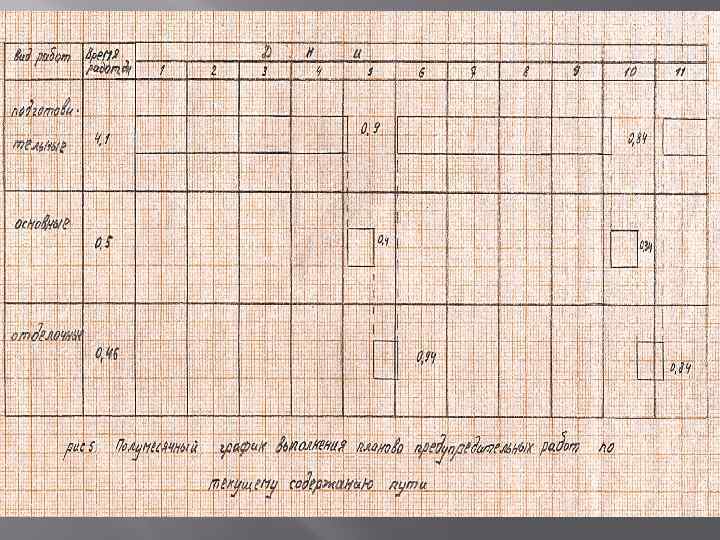 Вид работ Время работ дн Д н и
1 2 3 4 5 6 7 8 9 10 11
подготови-
тельные 4,1 0,9 0,84
основные 0,5 0,4 0,34
отделочные 0,46 0,94 0,84
рис 5. Полумесячный график выполнения планово предупредительных работ по
текущему содержанию пути